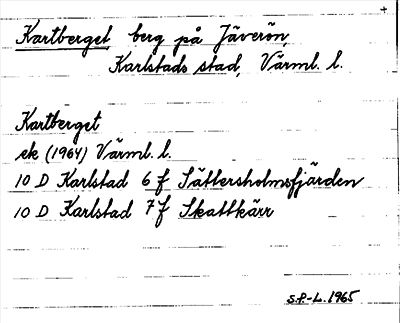 +
Kartberget, berg på Jäverön,
Karlstads stad, Värml. l.
Kartberget
ek (1964) Värml. l.
10 D Karlstad 6 f Sättersholmsfjärden
10 D Karlstad 7 f Skattkärr
S.P-L. 1965